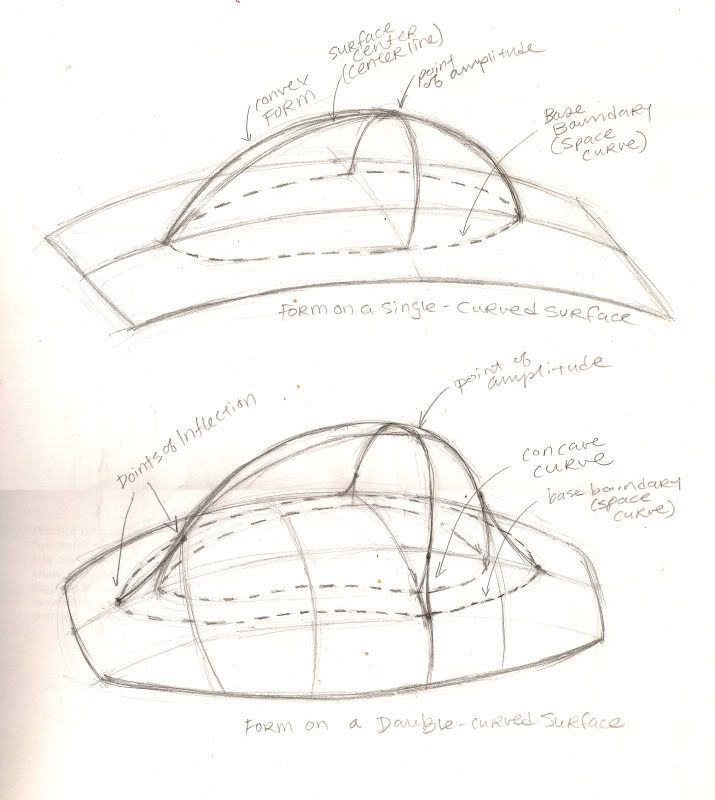 convex
FORM
surface
center
(center line)
point
of amplitude
Base
Boundary
(space
curve)
FORM on a single-curved surface
point of
amplitude
points of inflection
concave
curve
base boundary
(space
curve)
FORM on a Dauble-curved surface